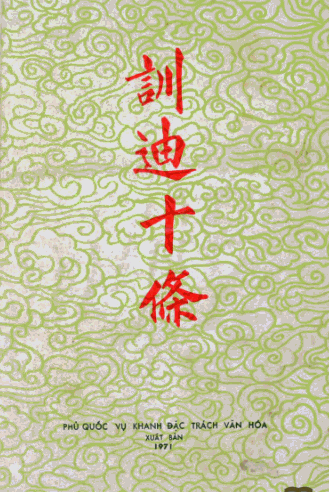 訓迪十條
PHỦ QUỐC VỤ KHANH ĐẶC TRÁCH VĂN HÓA
XUẤT BẢN
1971